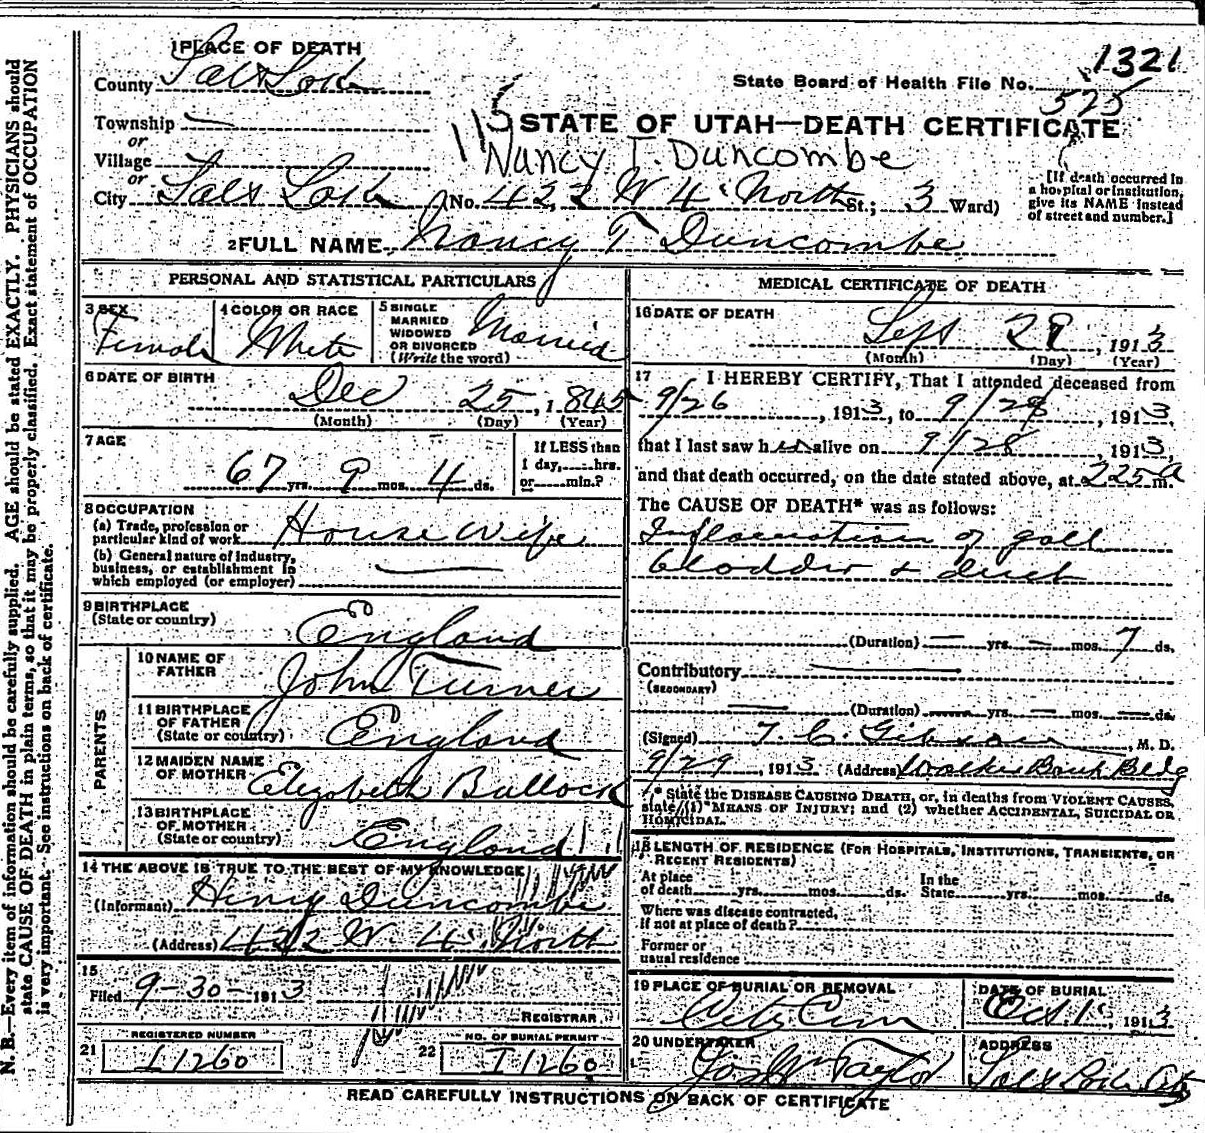 1 PLACE OF DEATH
County Salt Lake
Township —
or
Village
or
City Salt Lake (No. 422 W 4' North St.; 3 Ward)
1321
State Board of Health File No. 525
115
STATE OF UTAH—DEATH CERTIFICATE
Nancy T. Duncombe
[If death occurred in
a hospital or institution,
give its NAME instead
of street and number.]
2 FULL NAME Nancy T Duncombe
PERSONAL AND STATISTICAL PARTICULARS
3 SEX Female
4 COLOR OR RACE White
5 SINGLE
MARRIED
WIDOWED
OR DIVORCED
(Write the word) Married
6 DATE OF BIRTH
Dec 25, 1845
(Month) (Day) (Year)
7 AGE
67 yrs. 9 mos. 4 ds.
If LESS than
1 day, hrs.
or min.?
8 OCCUPATION
(a) Trade, profession or
particular kind of work House Wife
(b) General nature of industry,
business, or establishment in
which employed (or employer) —
9 BIRTHPLACE
(State or country) England
PARENTS
10 NAME OF
FATHER John Turner
11 BIRTHPLACE
OF FATHER
(State or country) England
12 MAIDEN NAME
OF MOTHER Elizabeth Bullock
13 BIRTHPLACE
OF MOTHER
(State or country) England
14 THE ABOVE IS TRUE TO THE BEST OF MY KNOWLEDGE
(Informant) Henry Duncombe
(Address) 422 W. 4' North
15
Filed 9-30- 1913
REGISTRAR
REGISTERED NUMBER
21 I 1260
NO. OF BURIAL PERMIT
22 I 1260
MEDICAL CERTIFICATE OF DEATH
16 DATE OF DEATH
Sept 29, 1913
(Month) (Day) (Year)
17 I HEREBY CERTIFY, That I attended deceased from
9/26, 1913, to 9/28, 1913,
that I last saw her alive on 9/28, 1913,
and that death occurred, on the date stated above, at 225 a m.
The CAUSE OF DEATH* was as follows:
Inflamation of gall
bladder & duct
(Duration) — yrs. — mos. 7 ds.
Contributory —
(SECONDARY)
(Duration) — yrs. — mos. — ds.
(Signed) T. C. Gibson, M. D.
9/29, 1913 (Address) Walker Bank Bldg
* State the DISEASE CAUSING DEATH, or, in deaths from VIOLENT CAUSES,
state (1) MEANS OF INJURY; and (2) whether ACCIDENTAL, SUICIDAL OR
HOMICIDAL.
18 LENGTH OF RESIDENCE (FOR HOSPITALS, INSTITUTIONS, TRANSIENTS, OR
RECENT RESIDENTS)
At place
of death yrs. mos. ds.
In the
State yrs. mos. ds.
Where was disease contracted,
if not at place of death?
Former or
usual residence
19 PLACE OF BURIAL OR REMOVAL
City Cem
DATE OF BURIAL
Oct. 1, 1913
20 UNDERTAKER
Jos Wm Taylor
ADDRESS
Salt Lake City
READ CAREFULLY INSTRUCTIONS ON BACK OF CERTIFICATE
N. B.—Every item of information should be carefully supplied. AGE should be stated EXACTLY. PHYSICIANS should
state CAUSE OF DEATH in plain terms, so that it may be properly classified. Exact statement of OCCUPATION
is very important. See instructions on back of certificate.